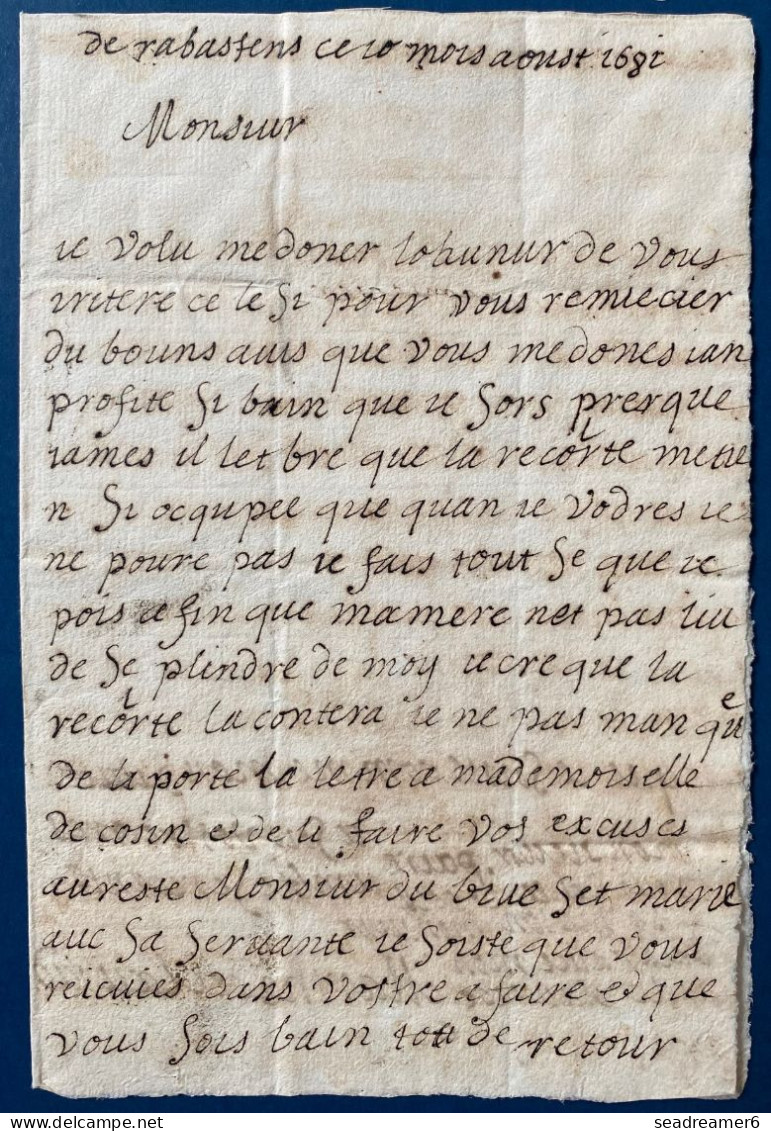 de rabastens ce 10 mois aoust 1681
Monsiur
ie volu me doner lohunur de vous
iritere ce le si pour vous remiecier
du bouns auis que vous me dones ian
profite si bain que ie sors presque
iames il let bre que la recorlte me tie
n si ocqupee que quan ie vodres ie
ne poure pas ie fais tout se que ie
pois a fin que ma mere net pas liu
de se plindre de moy ie cre que la
recorlte la contera ie ne pas man que
de la porte la letre a mademoiselle
de cosin e de li faire vos excuses
au reste Monsiur du brue set marie
auc sa seruante ie soiste que vous
reicuies dans vostre a faire e que
vous sois bain tott de retour
seadreamer6 delcampe.net